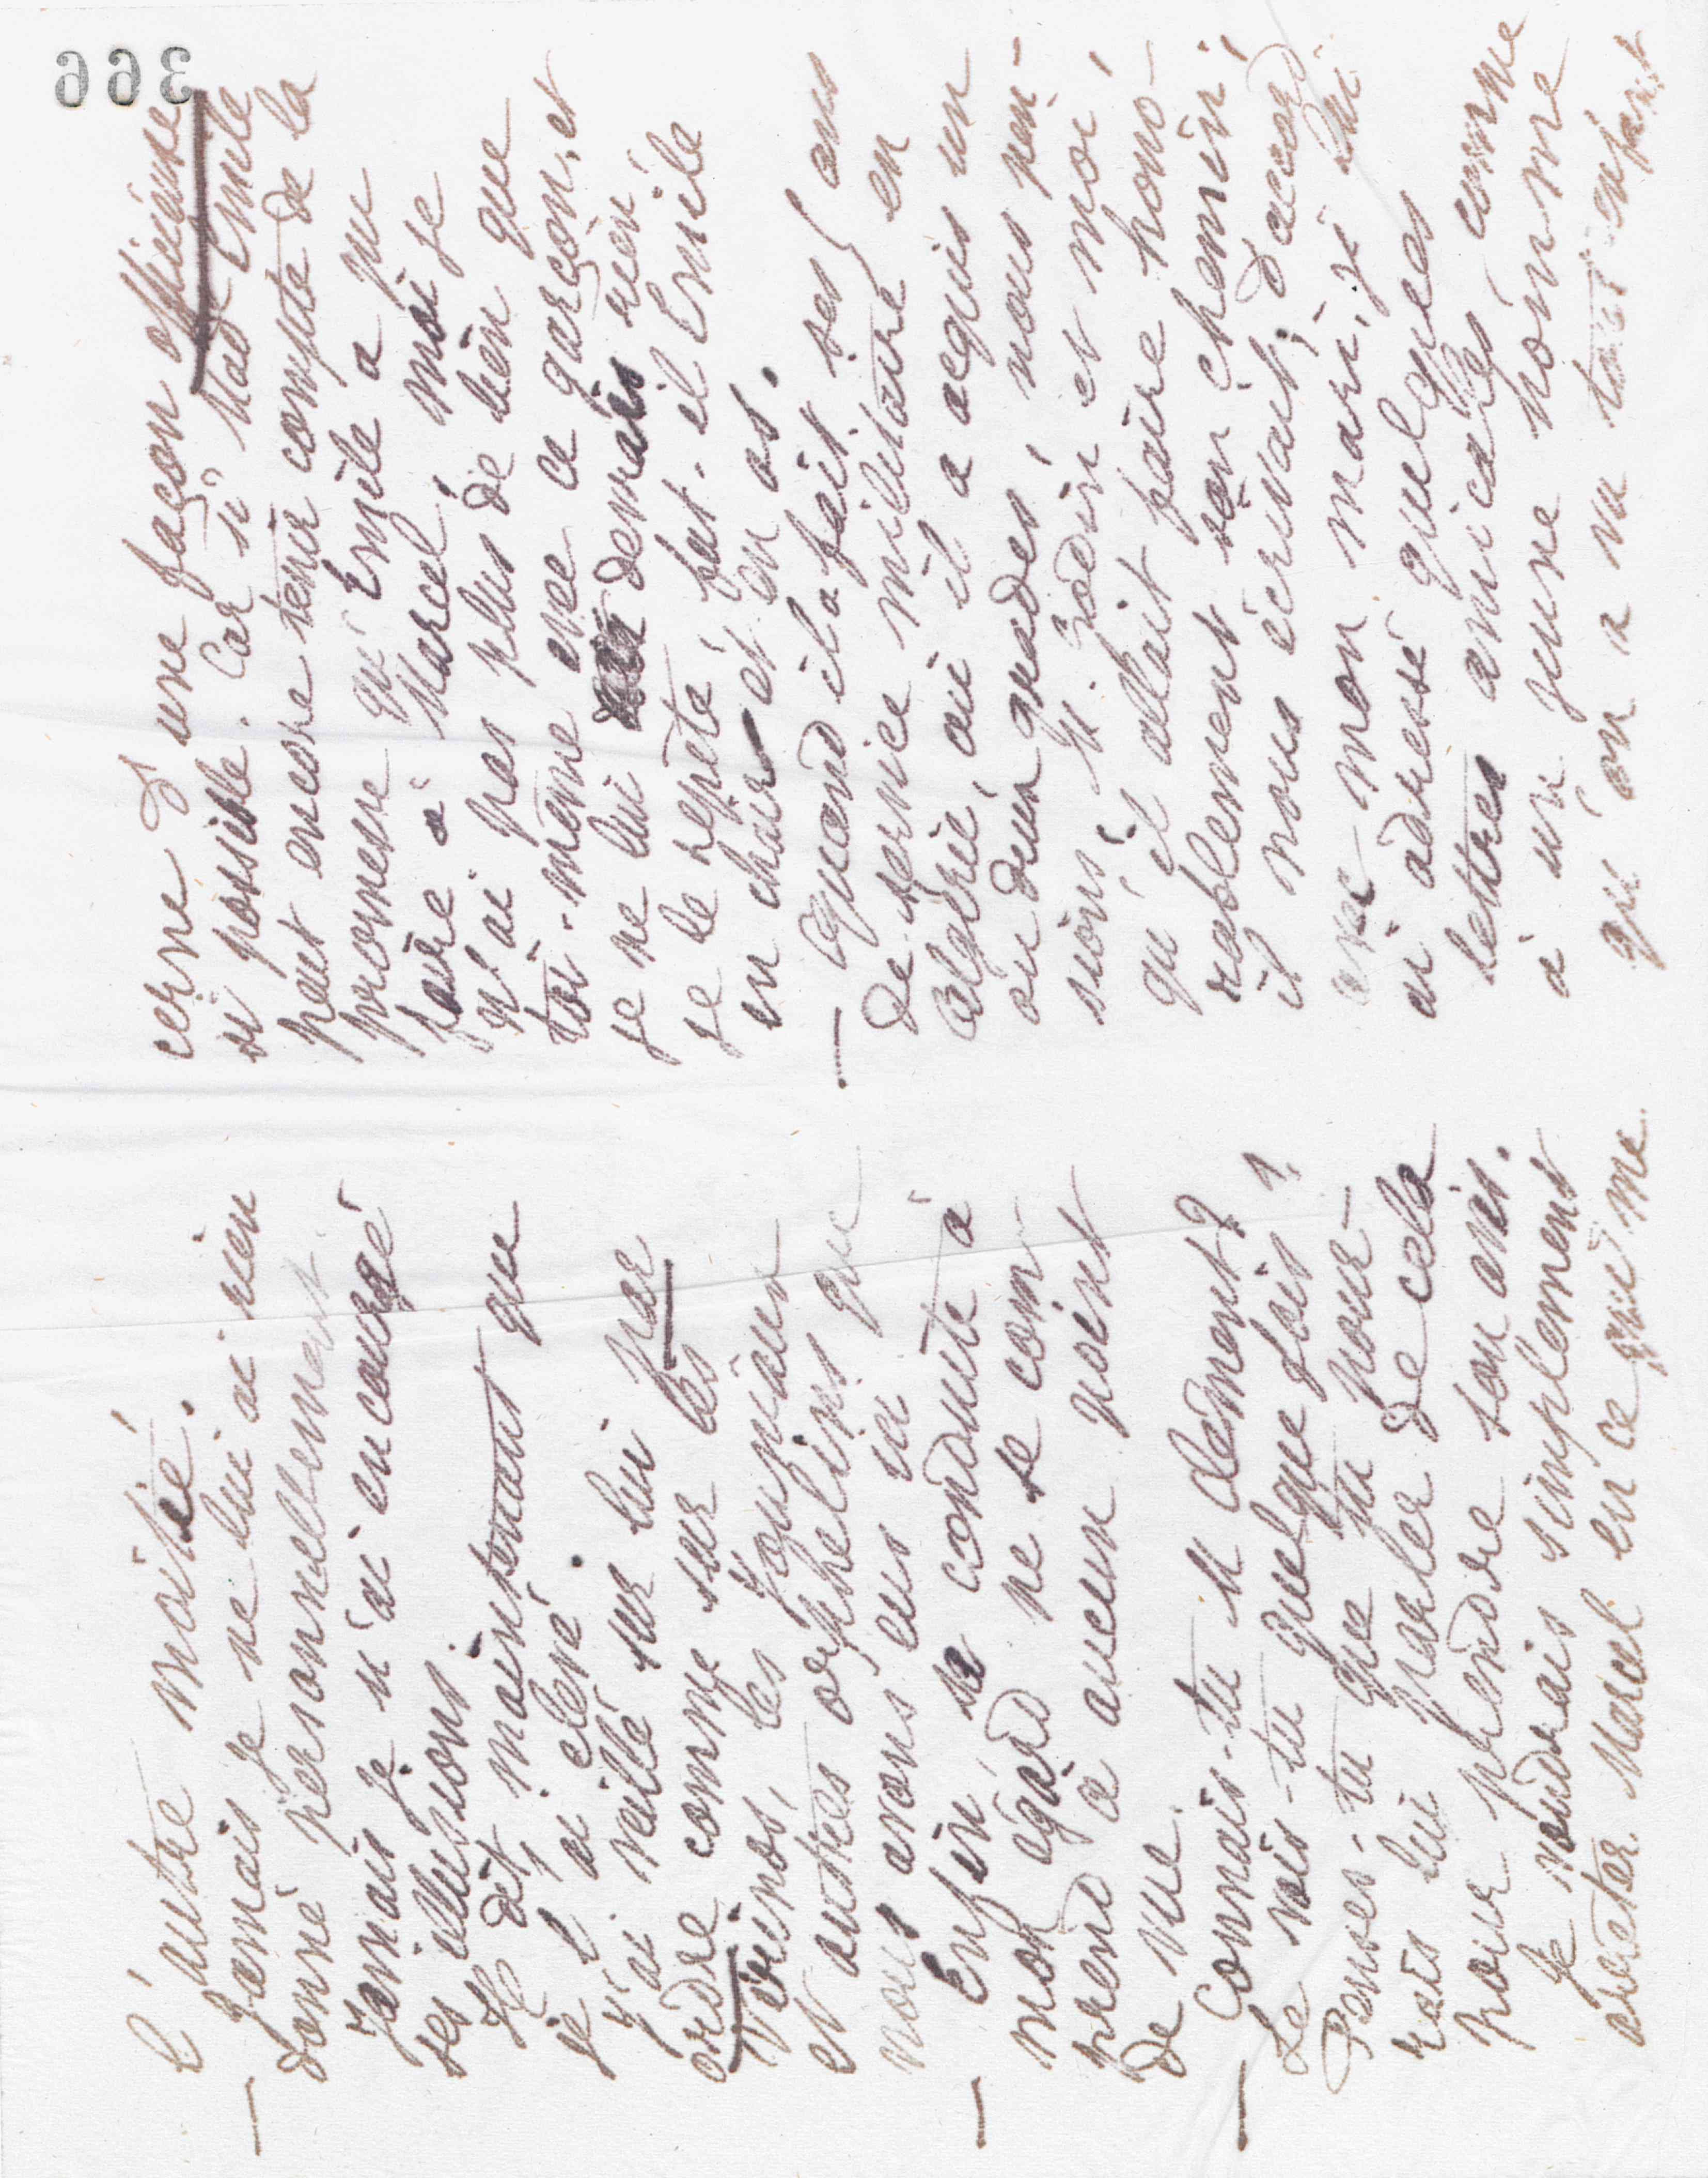 l'autre moitié.
— Jamais je ne lui ai rien
donné personnellement.
Jamais je n'ai encouragé
ses illusions.
Je dis maintenant que
je l'ai élevé.
J'ai veillé sur lui par
ordre comme sur les
Virinos, les Journiaux
et autres orphelins que
nous avons eus ici
— Enfin sa conduite à
mon égard ne se com
prend à aucun point
de vue.
— Connais-tu M Clément?
Le vois-tu quelque fois?
Penses-tu que tu pour-
rais lui parler de cela
pour prendre son avis.
Je voudrais simplement
arreter Marcel en ce qui me
cerne d'une façon efficiente
si possible. Car si Mad Emile
peut encore tenir compte de la
promesse qu'Emile a pu
faire à Marcel, moi je
n'ai pas plus de lien que
toi-même avec ce garçon, et
je ne lui devrais rien
je le répète fut-il Emile
en chair et en os.
— Quand il a fait ses ans
de service militaire en
Algérie, où il a acquis un
ou deux grades, nous pen-
sions, M. et moi
qu'il allait faire hono-
rablement son chemin
il nous écrivait; d'accord
avec mon mari, je lui
ai adressé quelques
lettres amicales comme
à un jeune homme
qu'on a vu tout enfant
366